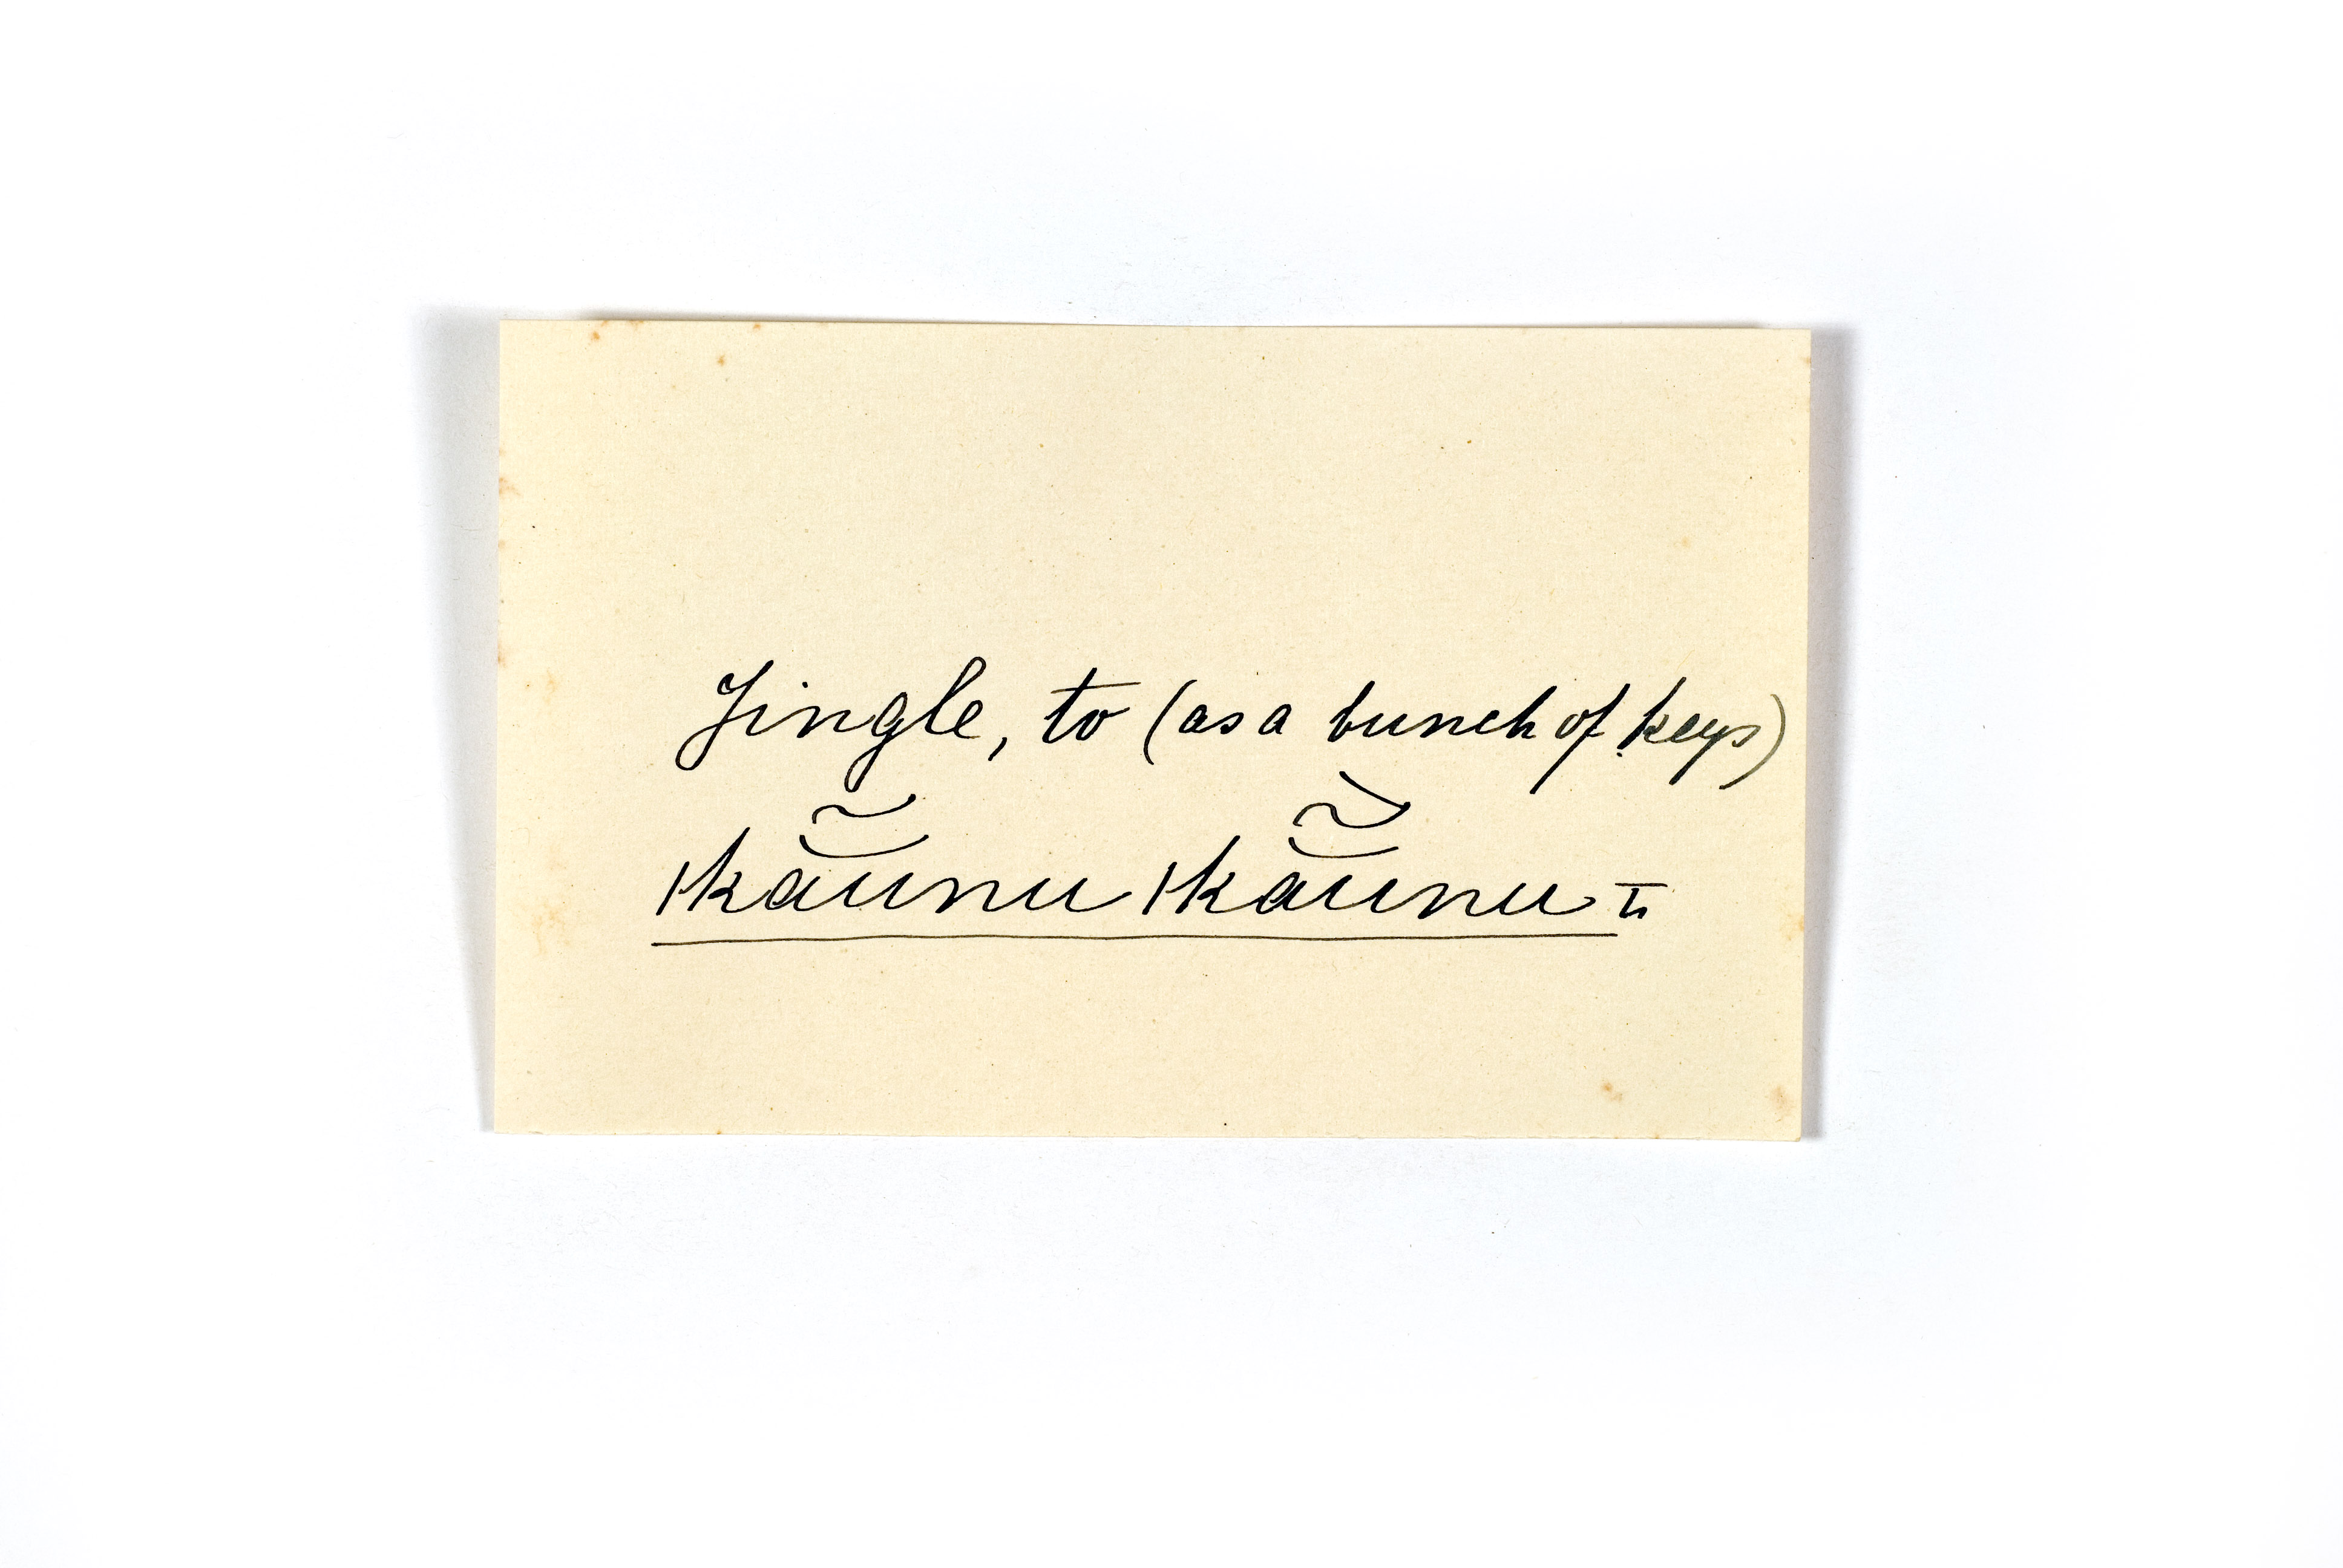 Jingle, to (as a bunch of keys)
ǀkā̆̃unu ǀkā̆̃unu ⊤ı.